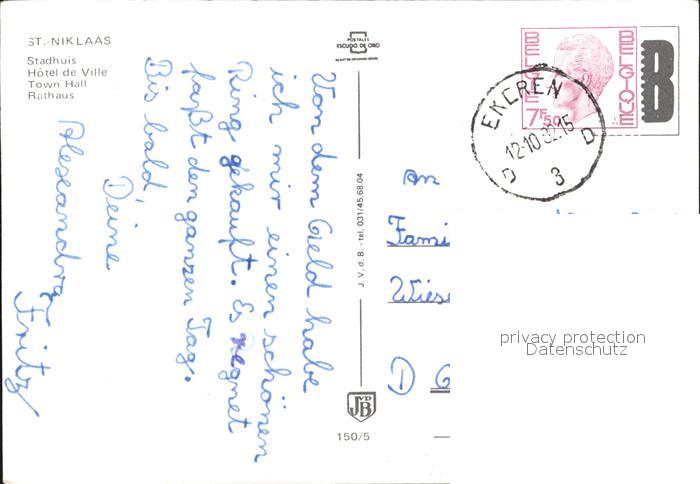 ST.-NIKLAAS
Stadhuis
Hôtel de Ville
Town Hall
Rathaus
POSTALES
ESCUDO DE ORO
BELGIE
BELGIQUE
7F50
B
EKEREN
12-10 82 15
D 3 D
Von dem Geld habe
ich mir einen schönen
Ring gekauft. Es regnet
faßt den ganzen Tag.
Bis bald,
Deine
Alexandra
Fritz
J.V.d.B. - tel. 031/45.68.04
JVDB
150/5
An
Fami
Wies
D
privacy protection
Datenschutz